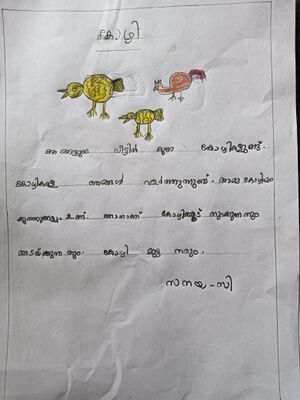 കോഴി
ഞങ്ങളുടെ വീട്ടിൽ കുറെ കോഴികളുണ്ട്.
കോഴികളെ ഞങ്ങൾ വളർത്തുന്നുണ്ട്. അമ്മ കോഴിയും
കുഞ്ഞുങ്ങളും ഉണ്ട് ഞാനാണ് കോഴിക്കൂട് തുറക്കുന്നതും
അടയ്ക്കുന്നതും. കോഴി മുട്ട തരും.
സനയ - സി